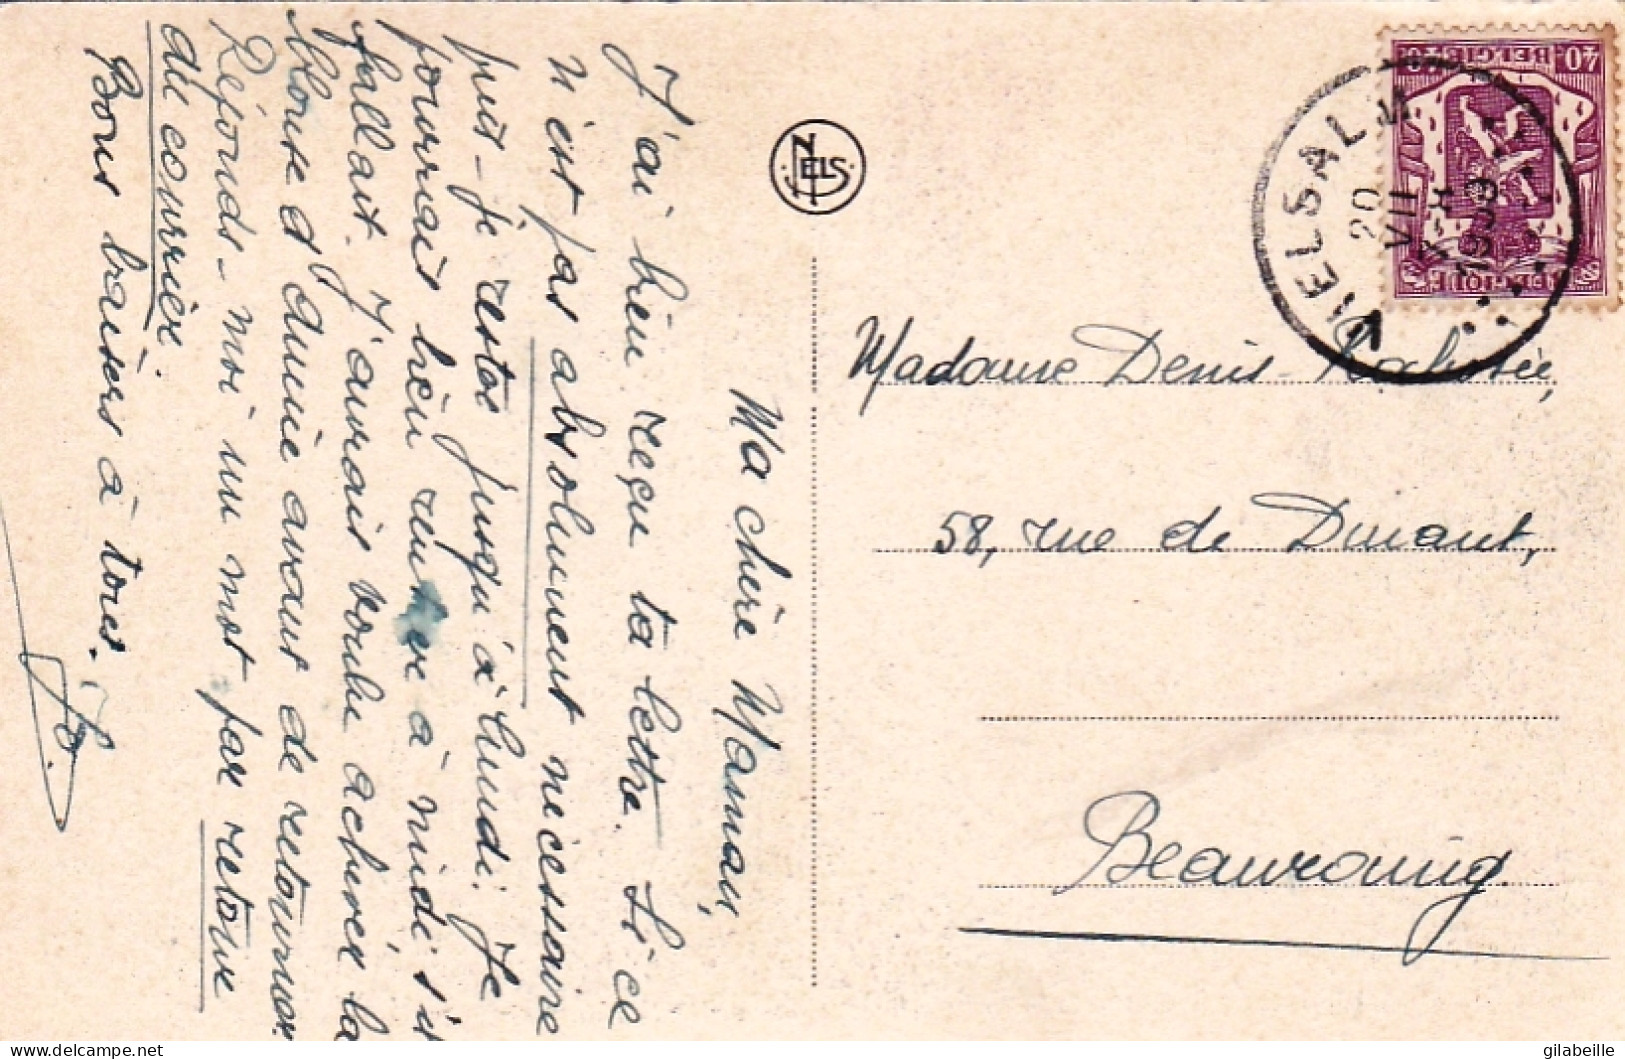 Ma chère Maman,
J'ai bien reçu ta lettre. Si ce
n'est pas absolument nécessaire
puis-je rester jusqu'à lundi. Je
pourrais bien venir à midi s'il
fallait. J'aurais voulu achever la
blouse d'Annie avant de retourner.
Réponds-moi un mot par retour
du courrier.
Bons baisers à tous.
Jo.
NELS
BELGIE
40 c
BELGIQUE
VIELSALM
20
VII
1939
Madame Denis-
58, rue de Dinant,
Beauraing
delcampe.net
gilabeille